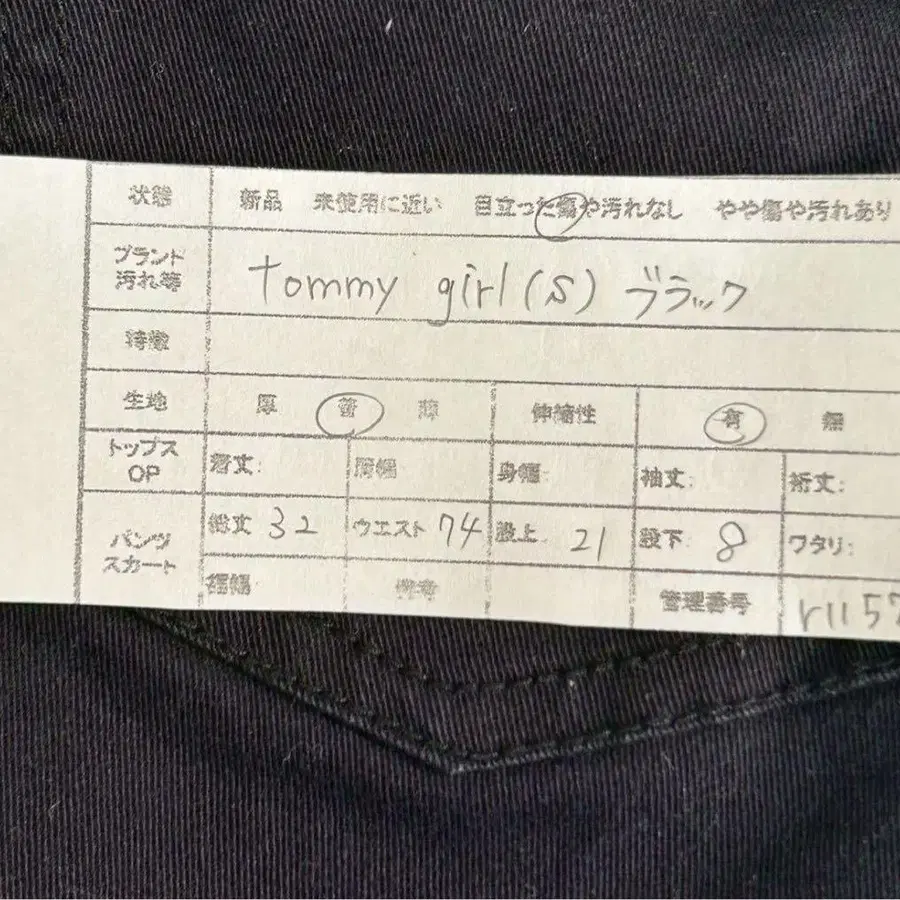 状態 新品 未使用に近い 目立った傷や汚れなし やや傷や汚れあり
ブランド
汚れ等
tommy girl(S) ブラック
特徴
生地 厚 普 薄 伸縮性 有 無
トップス
OP
着丈: 肩幅: 身幅: 袖丈: 裄丈:
パンツ
スカート
総丈 32 ウエスト 74 股上 21 股下 8 ワタリ:
裾幅: 備考 管理番号 r1157